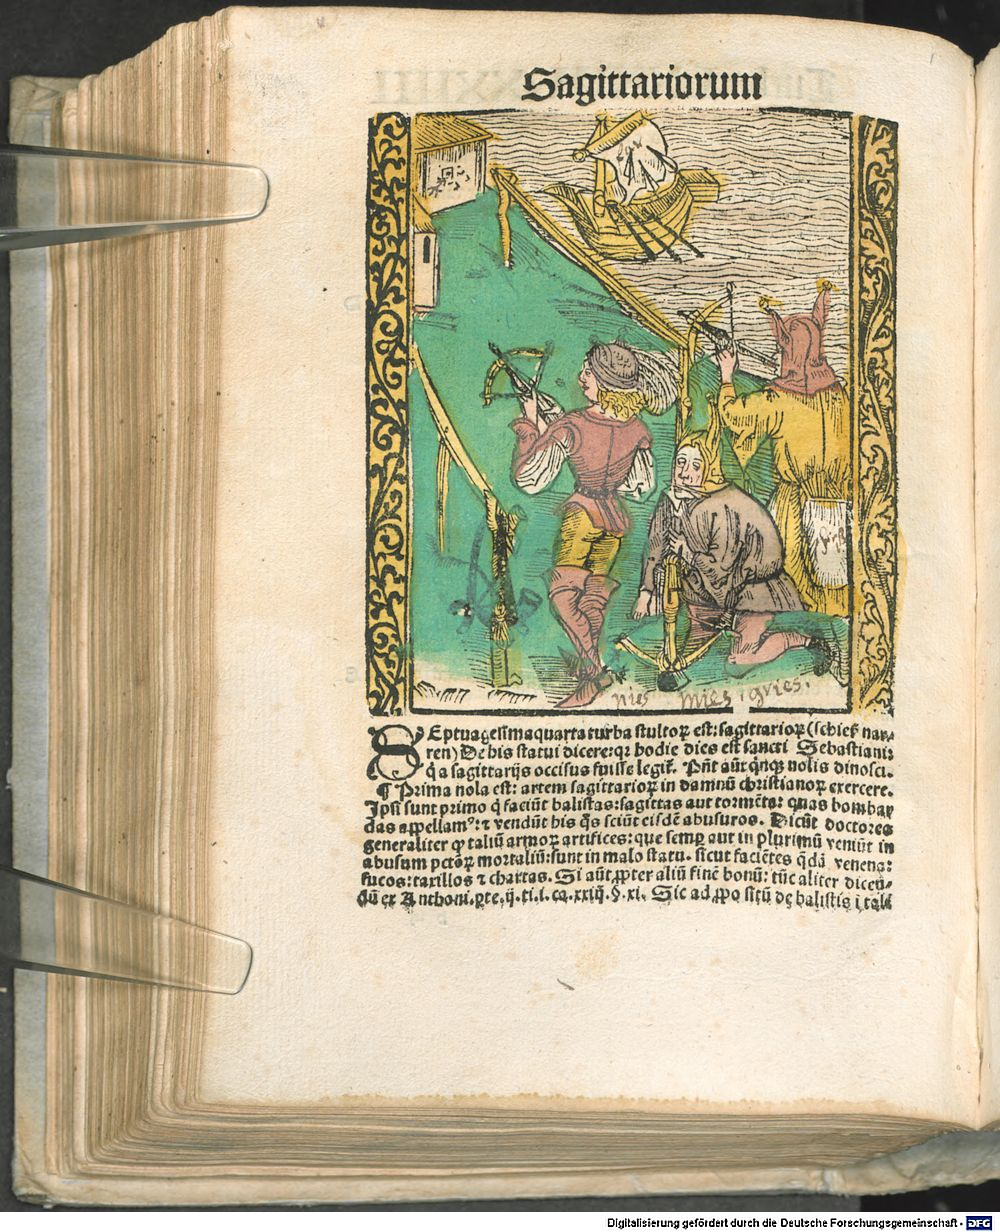 Sagittariorum
nies mies gvies.
SEptuagesimaquarta turba stultoꝝ est: sagittarioꝝ (schieß nar⸗
ren) De his statui dicere: qꝛ hodie dies est sancti Sebastiani:
q̇ a sagittarijs occisus fuisse legit᷑. Pn̄t aūt qͥnqꝫ nolis dinosci.
¶ Prima nola est: artem sagittarioꝝ in damnū christianoꝝ exercere.
Ipsi sunt primo q̇ faciūt balistas: sagittas aut tormēta: quas bombar
das appellamꝰ: ⁊ vendūt his q̄s sciūt eisdē abusuros. Dicūt doctores
generaliter ꝙ taliū armoꝝ artifices: que semꝑ aut in plurimū veniūt in
abusum pctōꝝ mortaliū: sunt in malo statu. sicut faciētes q̄dā venena:
fucos: taxillos ⁊ chartas. Si aūt ꝓpter aliū finē bonū: tūc aliter dicen⸗
dū ex Anthoni. ꝑte. ij. ti. i. ca. xxiij. §. xi. Sic ad ꝓpositū de balistis ⁊ tali
Digitalisierung gefördert durch die Deutsche Forschungsgemeinschaft - DFG